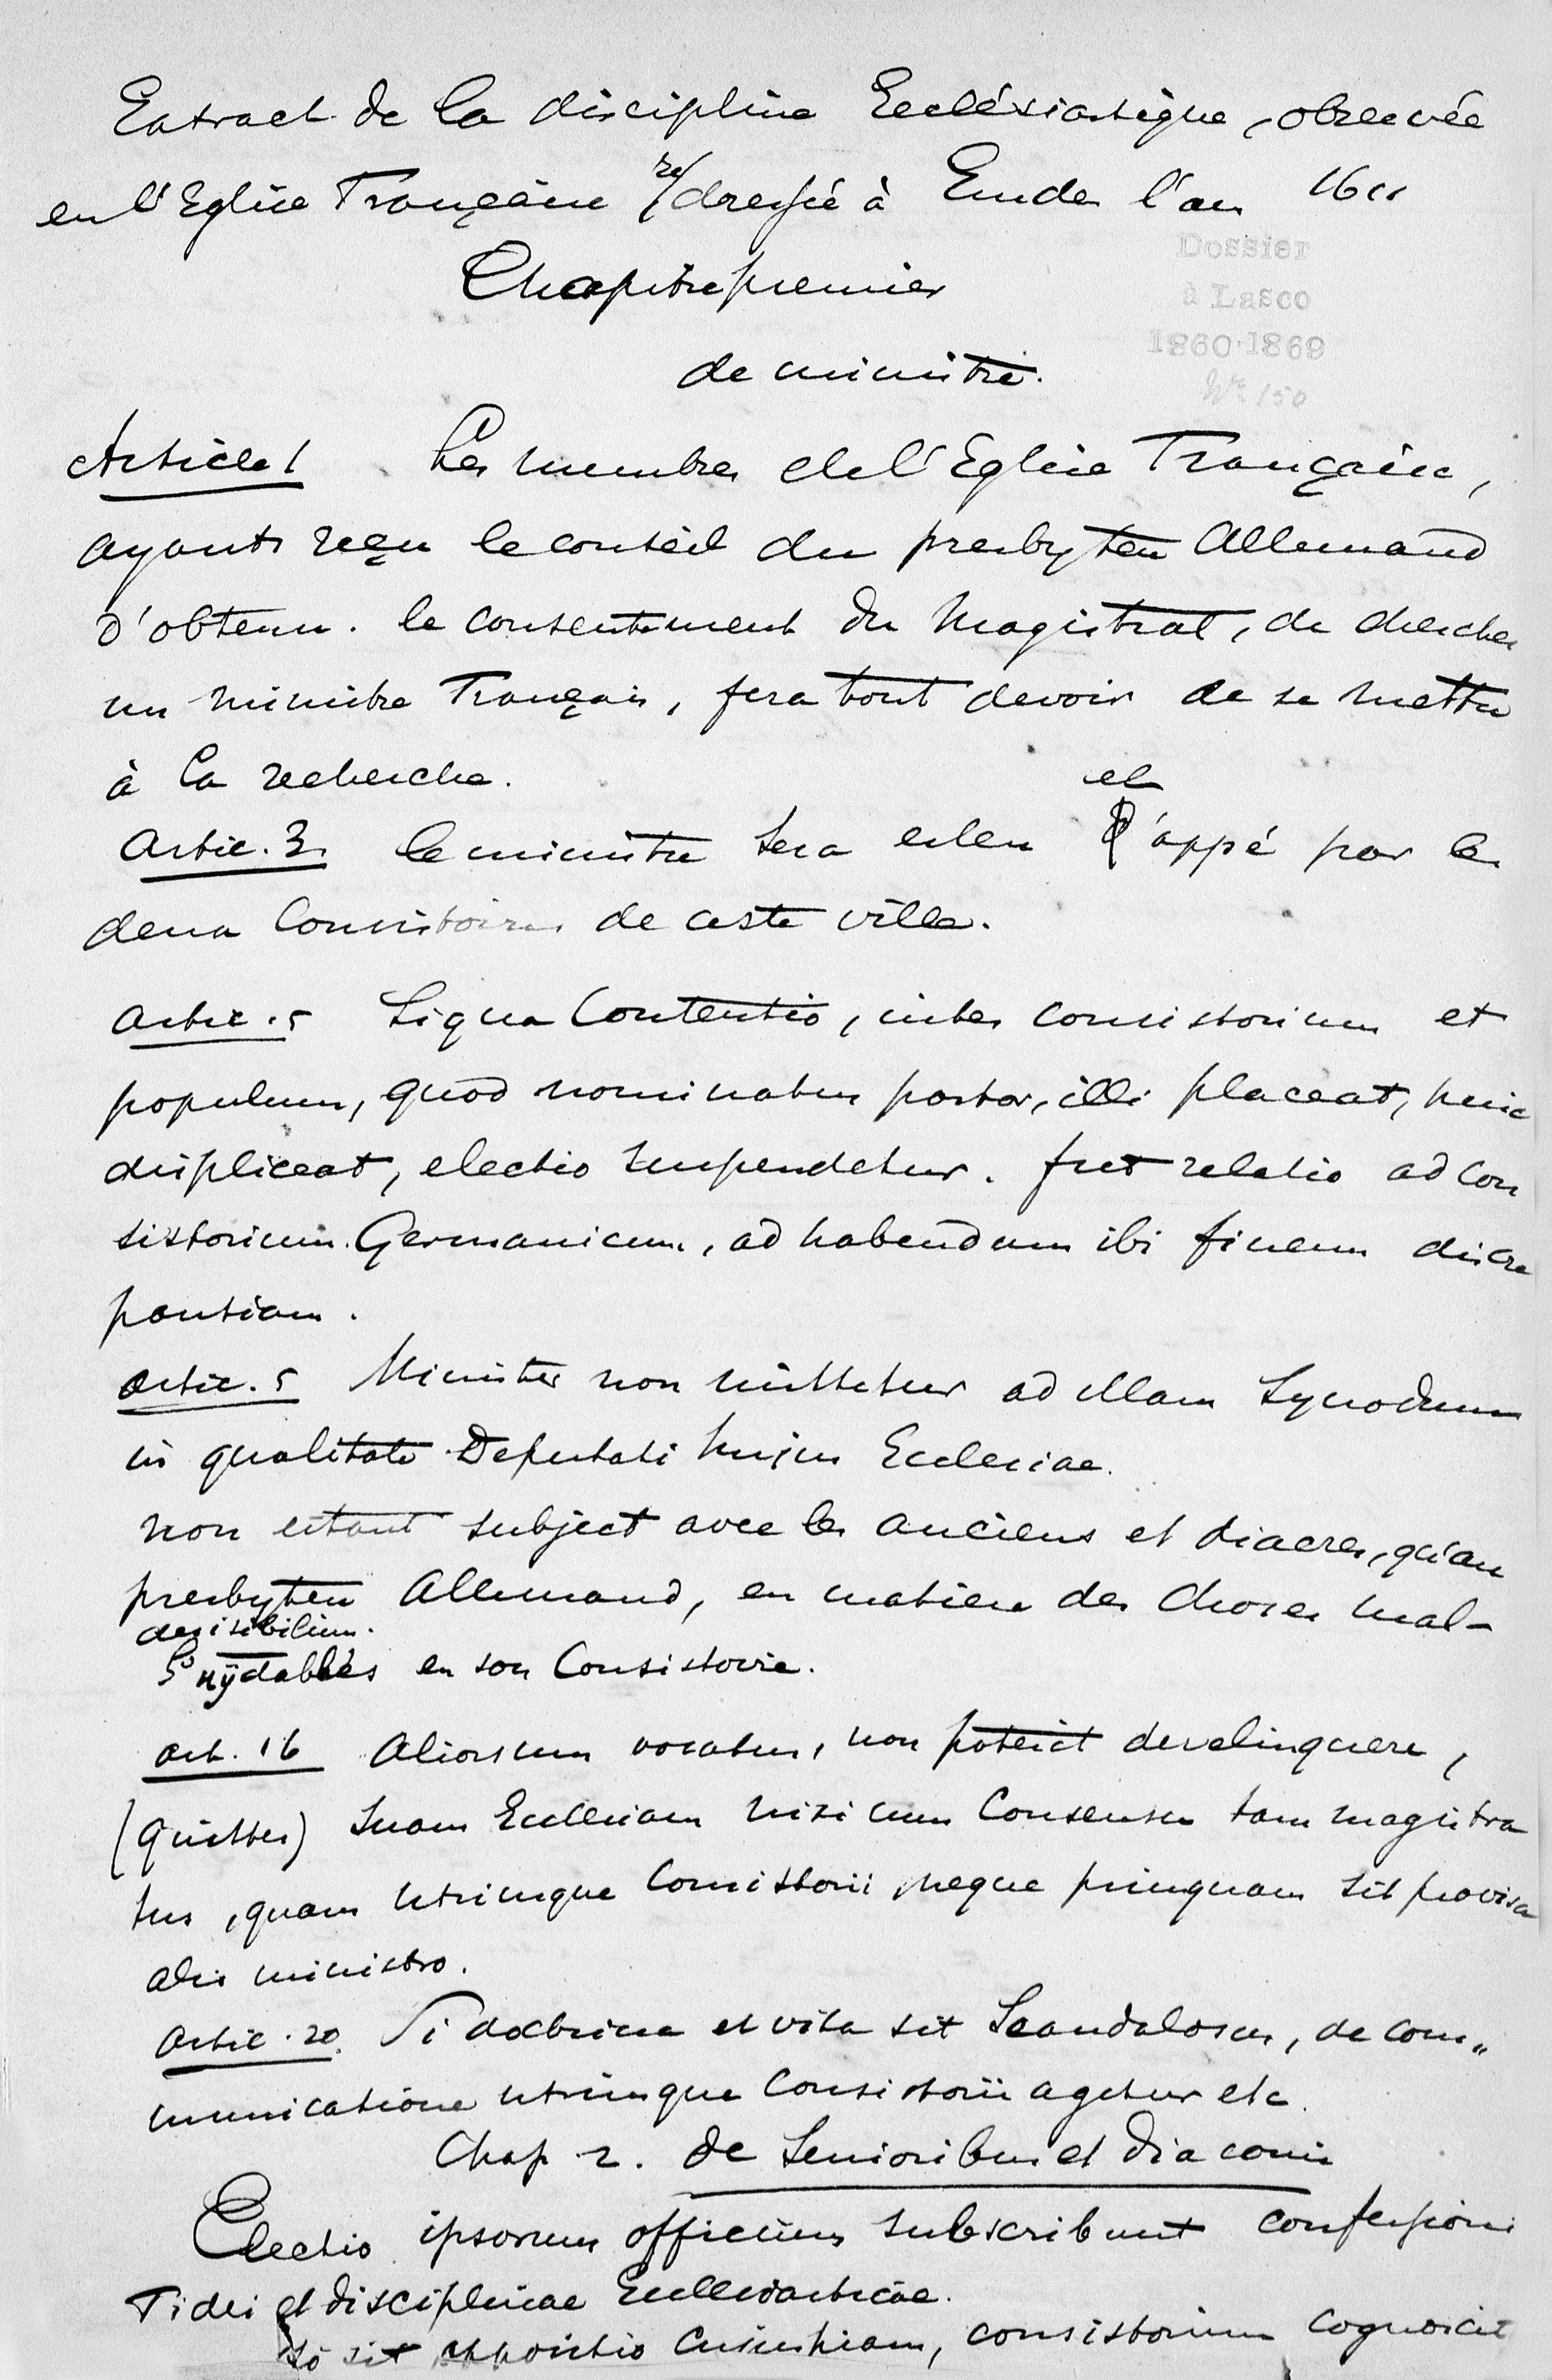 Extract de la discipline Ecclésiastique, observée
en l'Eglise Françoise re/dressée à Emden l'an 1611
Dossier
à Lasco
1860-1869
No 150
Chapitre premier
de ministre.
Article 1 Les membres de l'Eglise Françoise,
ayants reçu le conseil du presbytere Allemand
d'obtenir le consentement du Magistrat, de chercher
un ministre François, fera tout devoir de se mettre
à la recherche.
et
Artic. 3. le ministre sera esleu appé par les
deux Consistoires de ceste ville.
Artic. 5 Si qua Contentio, inter consistorium et
populum, quod nominatus pastor, illi placeat, huic
displiceat, electio suspendetur. fiet relatio ad Con
sistorium Germanicum, ad habendum ibi finem discre
pantiam.
Artic. 5 Minister non mittetur ad ullam Synodum
in qualitate Deputati hujus Ecclesiae.
non estant subject avec les anciens et diacres, qu'au
presbytere Allemand, en matiere des choses mal-
desisibilium.
en son Consistoire.
art. 16 Aliorsum vocatus, non poterit derelinquere,
(quitter) suam Ecclesiam nisi cum Consensu tam magistra
tus, quam utriusque Consistorii neque priusquam sit provisa
alio ministro.
Artic. 20. Si doctrina et vita sit Scandalosus, de com„
municatione utriusque Consistorii agetur etc.
Chap 2. de Senioribus et diaconis
Electio ipsorum officium subscribunt confessioni
Fidei et disciplinae Ecclesiasticae.
si sit oppositio cujuspiam, consistorium cognoscit